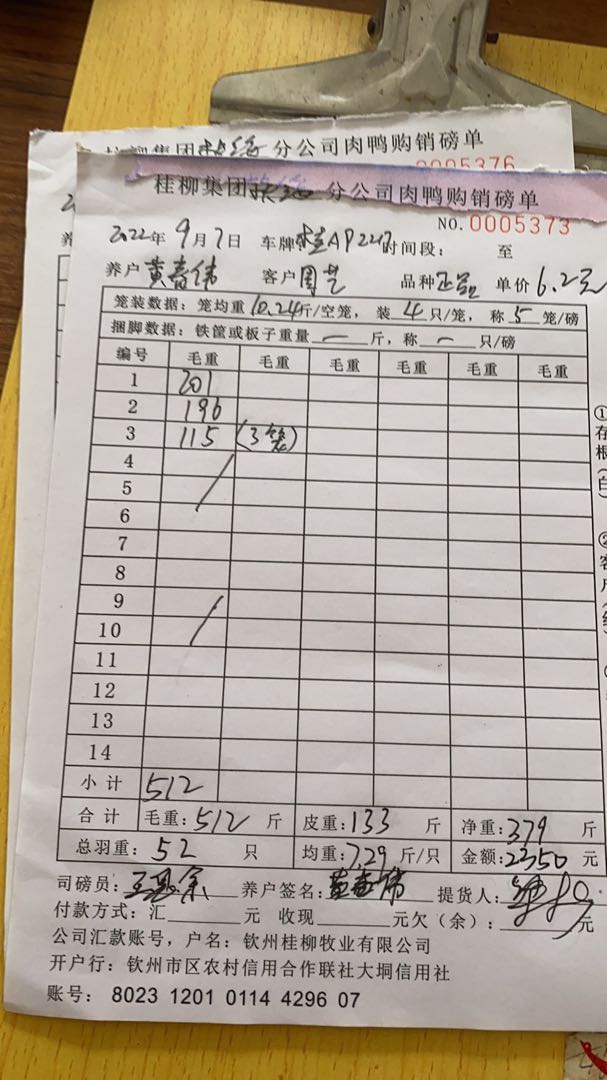 分公司肉鸭购销磅单
0005376
桂柳集团钦经分公司肉鸭购销磅单
NO.0005373
2022年9月7日 车牌:桂AP22 时间段: 至
养户黄春伟 客户周艺 品种正品 单价6.2元
笼装数据:笼均重10.24斤/空笼,装4只/笼,称5笼/磅
捆脚数据:铁筐或板子重量一斤,称一只/磅
编号 毛重 毛重 毛重 毛重 毛重 毛重
1 201
2 196
3 115 (3笼)
4
5
6
7
8
9
10
11
12
13
14
小计 512
合计 毛重:512斤 皮重:133斤 净重:379斤
总羽重:52只 均重:7.29斤/只 金额:2350元
司磅员: 养户签名:黄春伟 提货人:
付款方式:汇 元 收现 元欠(余): 元
公司汇款账号,户名:钦州桂柳牧业有限公司
开户行:钦州市区农村信用合作联社大垌信用社
账号: 8023 1201 0114 4296 07
①存根(白)
②客